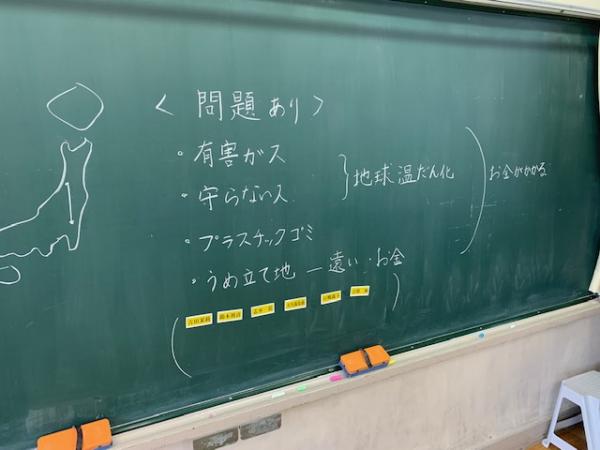 < 問題あり >
・有害ガス
・守らない人
}地球温だん化
)お金がかかる
・プラスチックゴミ
・うめ立て地 ― 遠い・お金